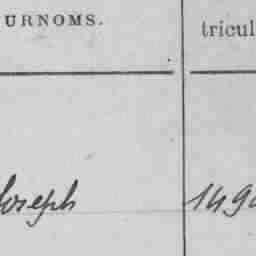 URNOMS.
tricul
Joseph
149